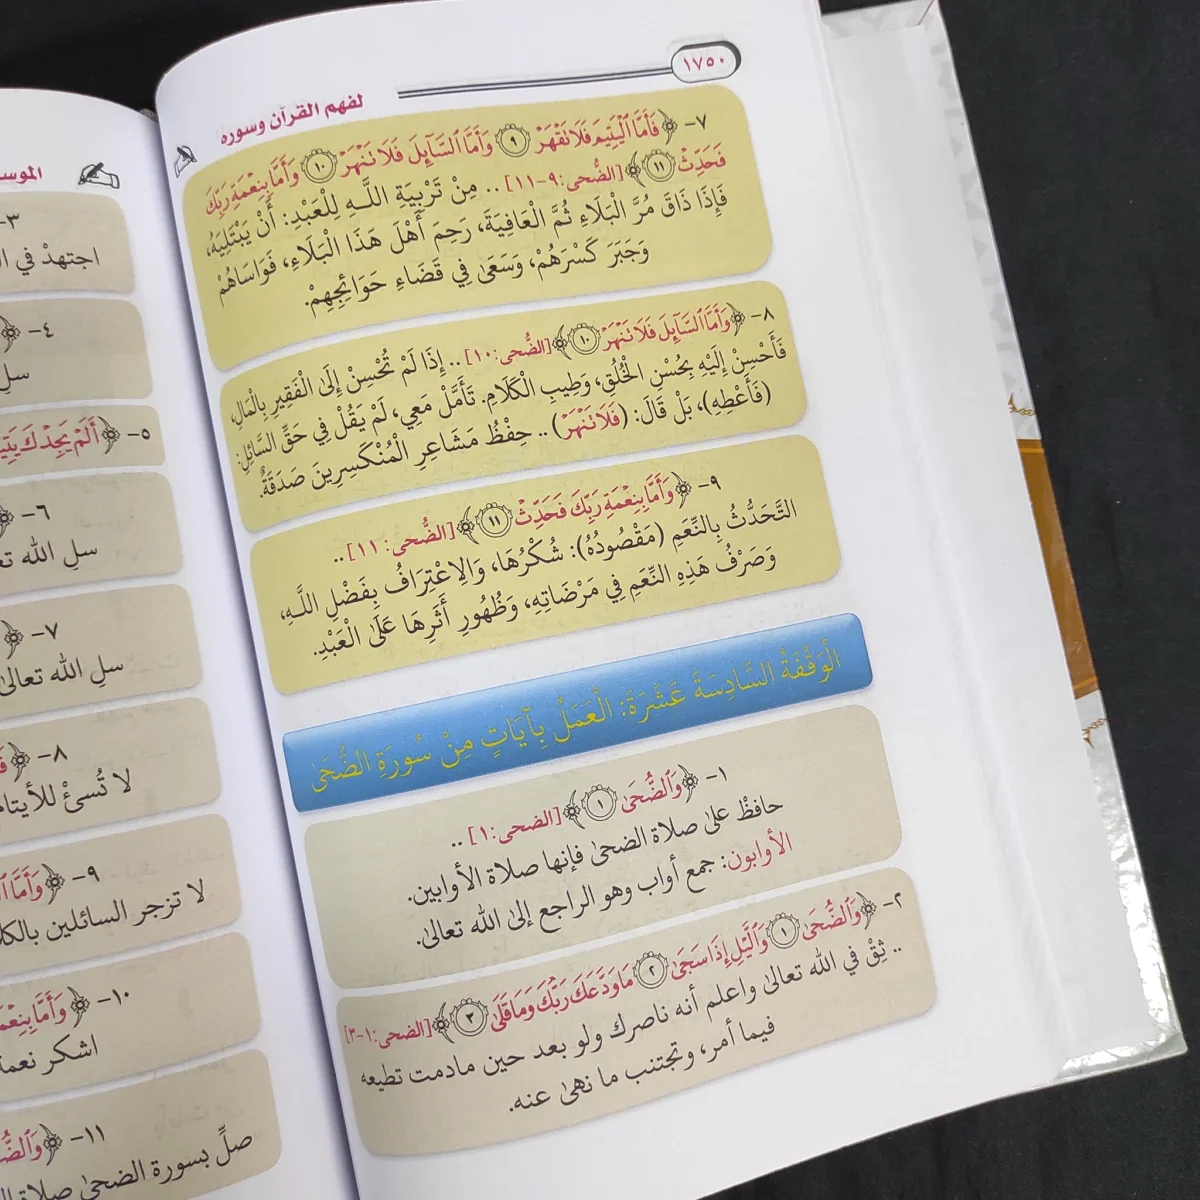 ١٧٥٠
لفهم القرآن وسوره
٧- ﴿فَأَمَّا ٱلْيَتِيمَ فَلَا تَقْهَرْ ۝٩ وَأَمَّا ٱلسَّآئِلَ فَلَا تَنْهَرْ ۝١٠ وَأَمَّا بِنِعْمَةِ رَبِّكَ
فَحَدِّثْ ۝١١﴾ [الضُّحى:٩-١١] .. مِنْ تَرْبِيَةِ اللَّهِ لِلْعَبْدِ: أَنْ يَبْتَلِيَهُ،
فَإِذَا ذَاقَ مُرَّ الْبَلَاءِ ثُمَّ الْعَافِيَةَ، رَحِمَ أَهْلَ هَذَا الْبَلَاءِ، فَوَاسَاهُمْ
وَجَبَرَ كَسْرَهُمْ، وَسَعَىٰ فِي قَضَاءِ حَوَائِجِهِمْ.
٨- ﴿وَأَمَّا ٱلسَّآئِلَ فَلَا تَنْهَرْ ۝١٠﴾ [الضُّحى:١٠] .. إِذَا لَمْ تُحْسِنْ إِلَىٰ الْفَقِيرِ بِالْمَالِ،
فَأَحْسِنْ إِلَيْهِ بِحُسْنِ الْخُلُقِ، وَطِيبِ الْكَلَامِ. تَأَمَّلْ مَعِي، لَمْ يَقُلْ فِي حَقِّ السَّائِلِ:
(فَأَعْطِهِ)، بَلْ قَالَ: (فَلَا تَنْهَرْ) .. حِفْظُ مَشَاعِرِ الْمُنْكَسِرِينَ صَدَقَةٌ.
٩- ﴿وَأَمَّا بِنِعْمَةِ رَبِّكَ فَحَدِّثْ ۝١١﴾ [الضُّحى:١١] ..
التَّحَدُّثُ بِالنِّعَمِ (مَقْصُودُهُ): شُكْرُهَا، وَالِاعْتِرَافُ بِفَضْلِ اللَّهِ،
وَصَرْفُ هَذِهِ النِّعَمِ فِي مَرْضَاتِهِ، وَظُهُورِ أَثَرِهَا عَلَىٰ الْعَبْدِ.
الْوَقْفَةُ السَّادِسَةَ عَشَرَةَ: الْعَمَلُ بِآيَاتٍ مِنْ سُورَةِ الضُّحَىٰ
١- ﴿وَٱلضُّحَىٰ ۝١﴾ [الضحى:١] ..
حافظْ علىٰ صلاة الضحىٰ فإنها صلاة الأوابين.
الأوابون: جمع أواب وهو الراجع إلىٰ الله تعالىٰ.
٢- ﴿وَٱلضُّحَىٰ ۝١ وَٱلَّيْلِ إِذَا سَجَىٰ ۝٢ مَا وَدَّعَكَ رَبُّكَ وَمَا قَلَىٰ ۝٣﴾ [الضحى:١-٣]
.. ثِقْ في الله تعالىٰ واعلم أنه ناصرك ولو بعد حين مادمت تطيعه
فيما أمر، وتجتنب ما نهىٰ عنه.
٣-
اجتهدْ في
٤- ﴿
سلِ
٥- ﴿أَلَمْ يَجِدْكَ
٦- ﴿
سلِ الله
٧- ﴿
سلِ الله تعالىٰ
٨- ﴿
لا تُسئْ للأيتام
٩- ﴿وَأَمَّا
لا تزجر السائلين
١٠- ﴿وَأَمَّا
اشكر
١١- ﴿
صلِّ بسورة الضحىٰ